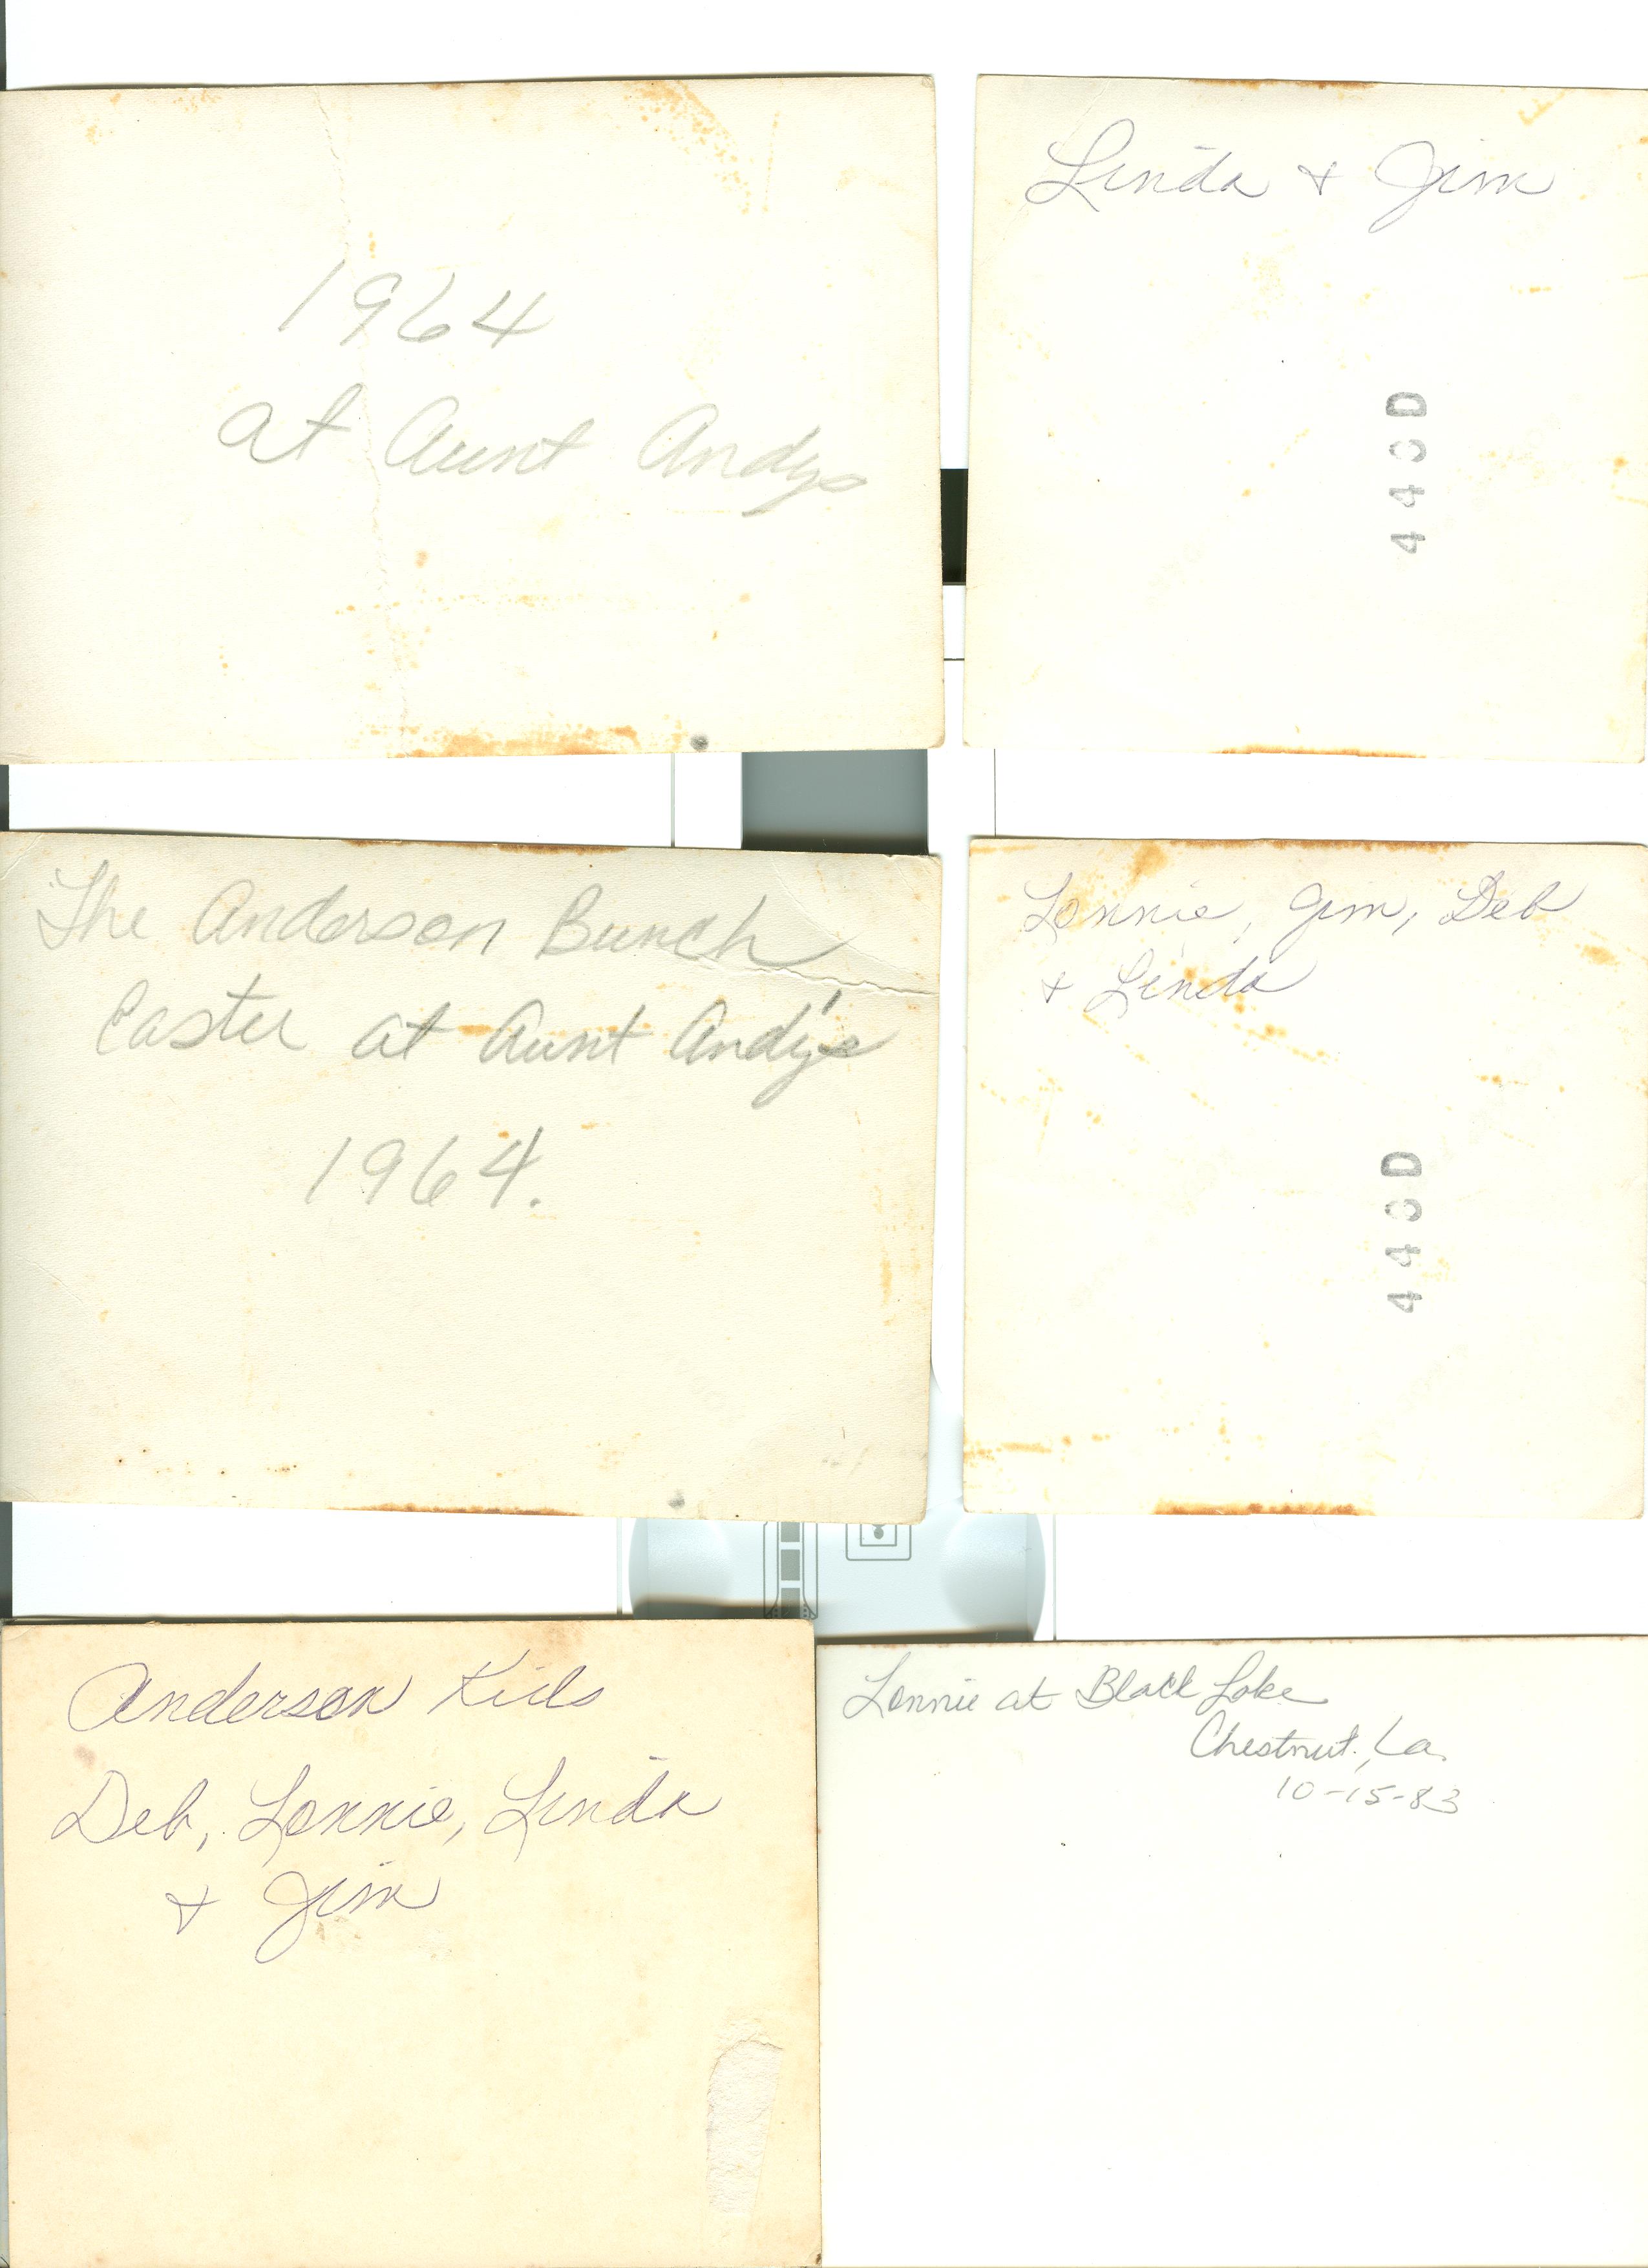 1964
at Aunt Andys
Linda + Jim
The Anderson Bunch
Easter at Aunt Andy's
1964.
Lonnie, Jim, Deb
+ Linda
Anderson Kids
Deb, Lonnie, Linda
+ Jim
Lonnie at Black Lake
Chestnut, La.
10-15-83